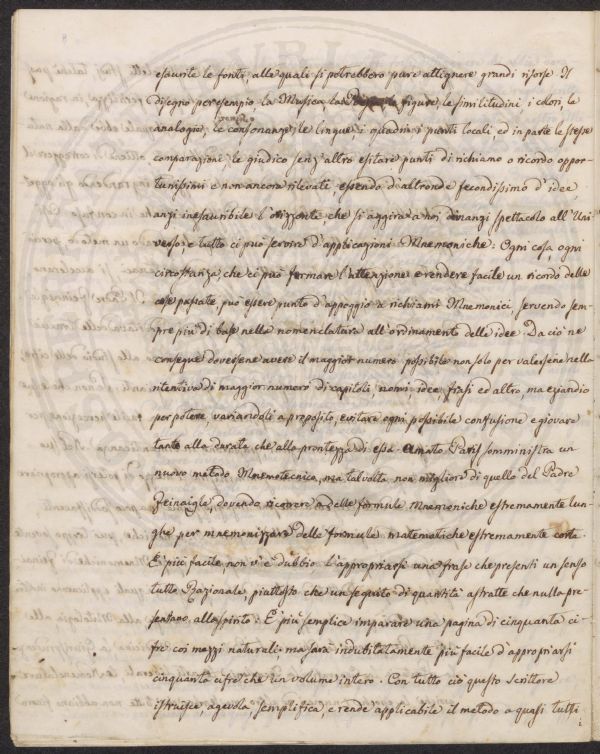 esaurite le fonti, alle quali si potrebbero pure attignere grandi risorse. Il
disegno per esempio la Musica, le figure, le similitudini i colori, le
analogie, le consonanze, le lingue i quadri i punti locali, ed in parte le stesse
comparazioni, le giudico senz'altro esitare punti di richiamo o ricordo oppor-
tunissimi e non ancora rilevati, essendo d'altronde fecondissimo d'idee,
anzi inesauribile l'orizzonte che si aggira a noi dinanzi spettacolo all'Uni
verso: e tutto ci può servire d'applicazioni Mnemoniche: Ogni cosa, ogni
circostanza, che ci può fermare l'attenzione e rendere facile un ricordo delle
cose passate, può essere punto d'appoggio a richiami Mnemonici servendo sem-
pre più di base nella nomenclatura all'ordinamento delle idee. Da ciò ne
consegue doversene avere il maggior numero possibile non solo per valersene nella
ritentiva di maggior numero di capitoli, nomi idee, frasi ed altro, ma eziandio
per potere, variandoli a proposito, evitare ogni possibile confusione e giovare
tanto alla durata che alla prontezza di essa. Amato Paris somministra un
nuovo metodo Mnemotecnico, ma talvolta non migliore di quello del Padre
Feinaigle, dovendo ricorrere a delle formule Mnemoniche estremamente lun-
ghe per mnemonizzare delle formule matematiche estremamente corte.
E' più facile, non v'è dubbio l'appropriarsi una frase che presenti un senso
tutto Razionale, piuttosto che un seguito di quantità astratte che nulla pre-
sentano allo spirito: E' più semplice imparare una pagina di cinquanta ci-
fre coi mezzi naturali. ma sarà indubitatamente più facile d'appropriarsi
cinquanta cifre che un volume intero. Con tutto ciò questo scrittore
istruisce, agevola, semplifica, e rende applicabile il metodo a quasi tutti
i